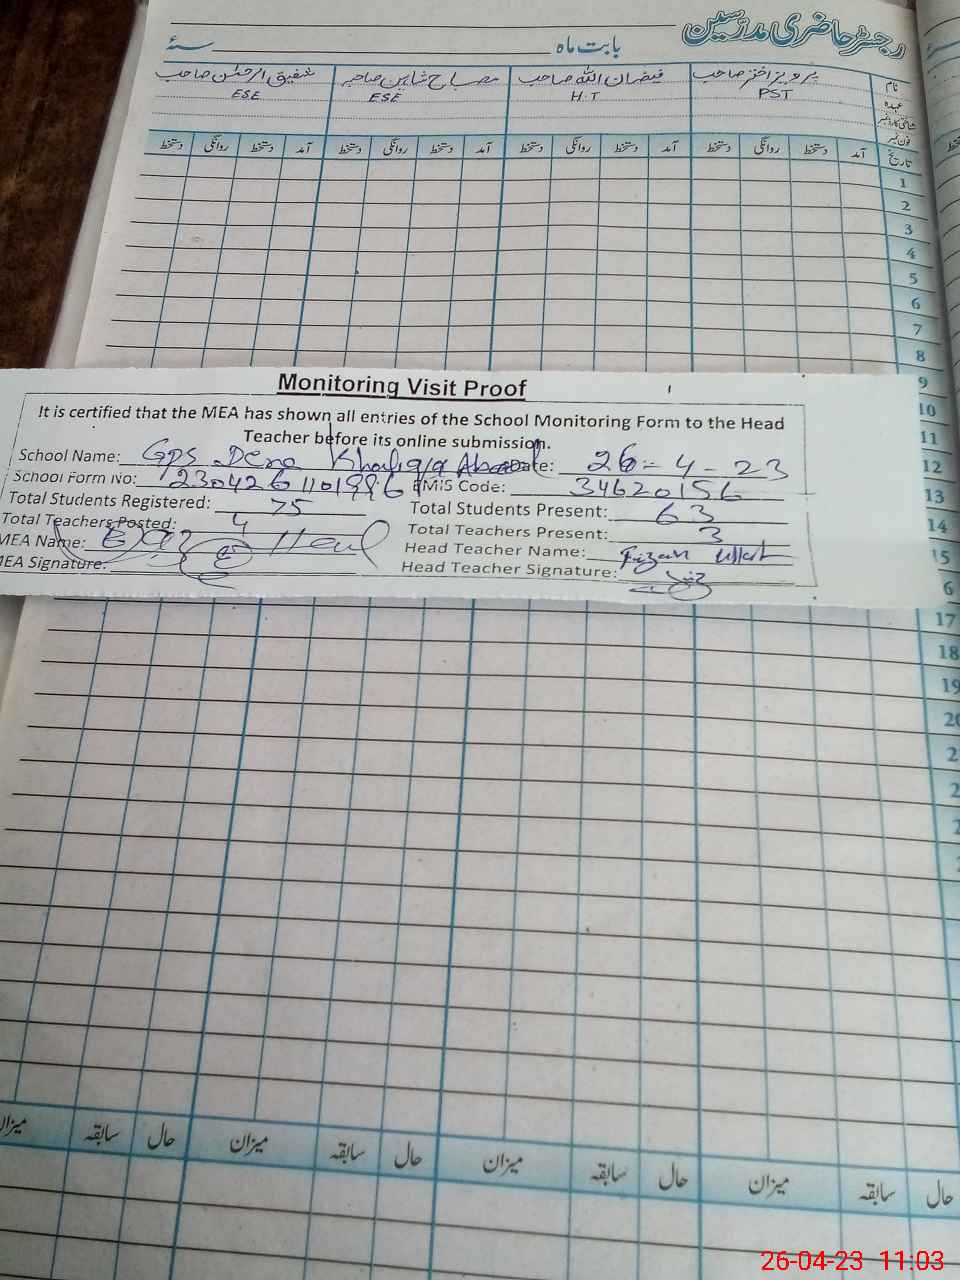 رجسٹر حاضری مدرسین
بابت ماہ ــــــــ سنہ
نام پرویز اختر صاحب فیضان اللہ صاحب مصباح شاہین صاحبہ شفیق الرحمٰن صاحب
عہدہ PST H.T ESE ESE
شناختی کارڈ نمبر
فون نمبر
تاریخ آمد دستخط روانگی دستخط آمد دستخط روانگی دستخط آمد دستخط روانگی دستخط آمد دستخط روانگی دستخط
1
2
3
4
5
6
7
8
9
10
11
12
13
14
15
6
17
18
19
20
Monitoring Visit Proof
It is certified that the MEA has shown all entries of the School Monitoring Form to the Head
Teacher before its online submission.
School Name: GPS Dera Date: 26-4-23
School Form No: EMIS Code: 34620156
Total Students Registered: 75 Total Students Present: 63
Total Teachers Posted: 4 Total Teachers Present: 3
MEA Name: Head Teacher Name: Faizan Ullah
MEA Signature: Head Teacher Signature:
حال سابقہ میزان حال سابقہ میزان حال سابقہ میزان حال سابقہ میزان
26-04-23 11:03